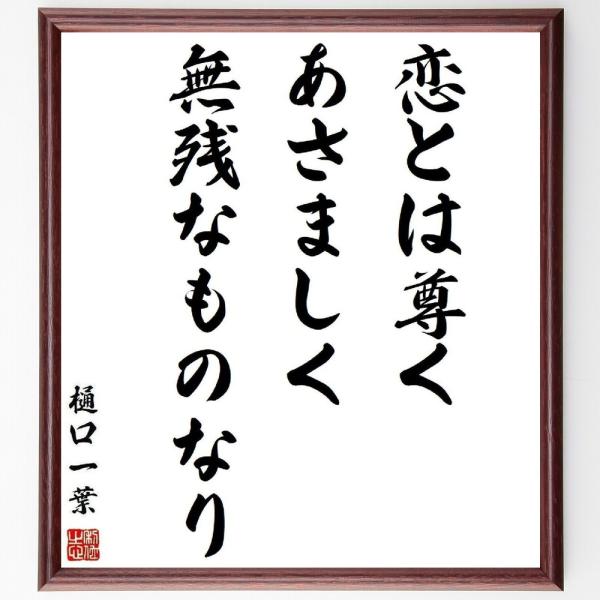 恋とは尊く
あさましく
無残なものなり
樋口一葉